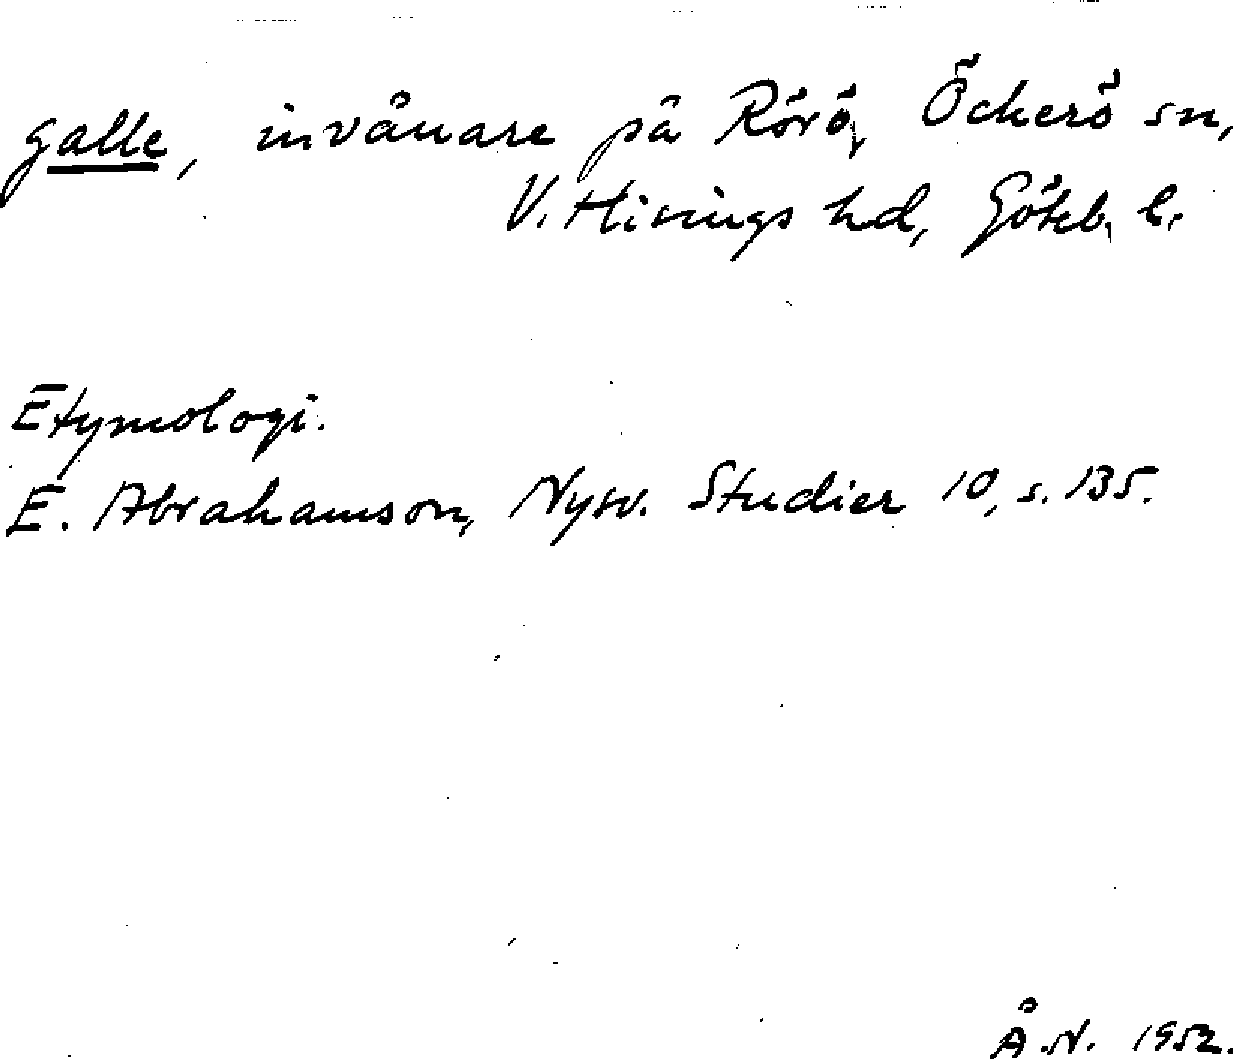 galle, invånare på Rörö, Öckerö sn,
V. Hisings hd, Göteb. l.
Etymologi.
E. Abrahamson, Nysv. Studier 10, s. 135.
Å.N. 1952.